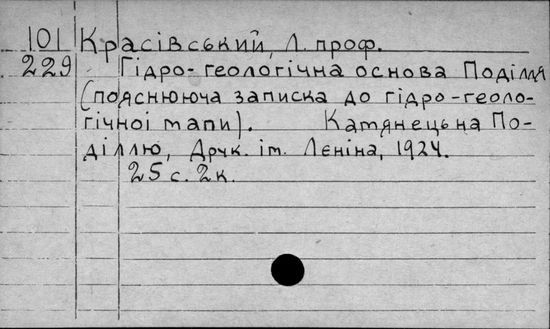 101 Красівський, Л. проф.
229 Гідро-геологічна основа Поділля
(пояснююча записка до гідро-геоло-
гічноі мапи). Камянець на По-
діллю, Друк. ім. Лєніна, 1924.
25 с. 2 к.